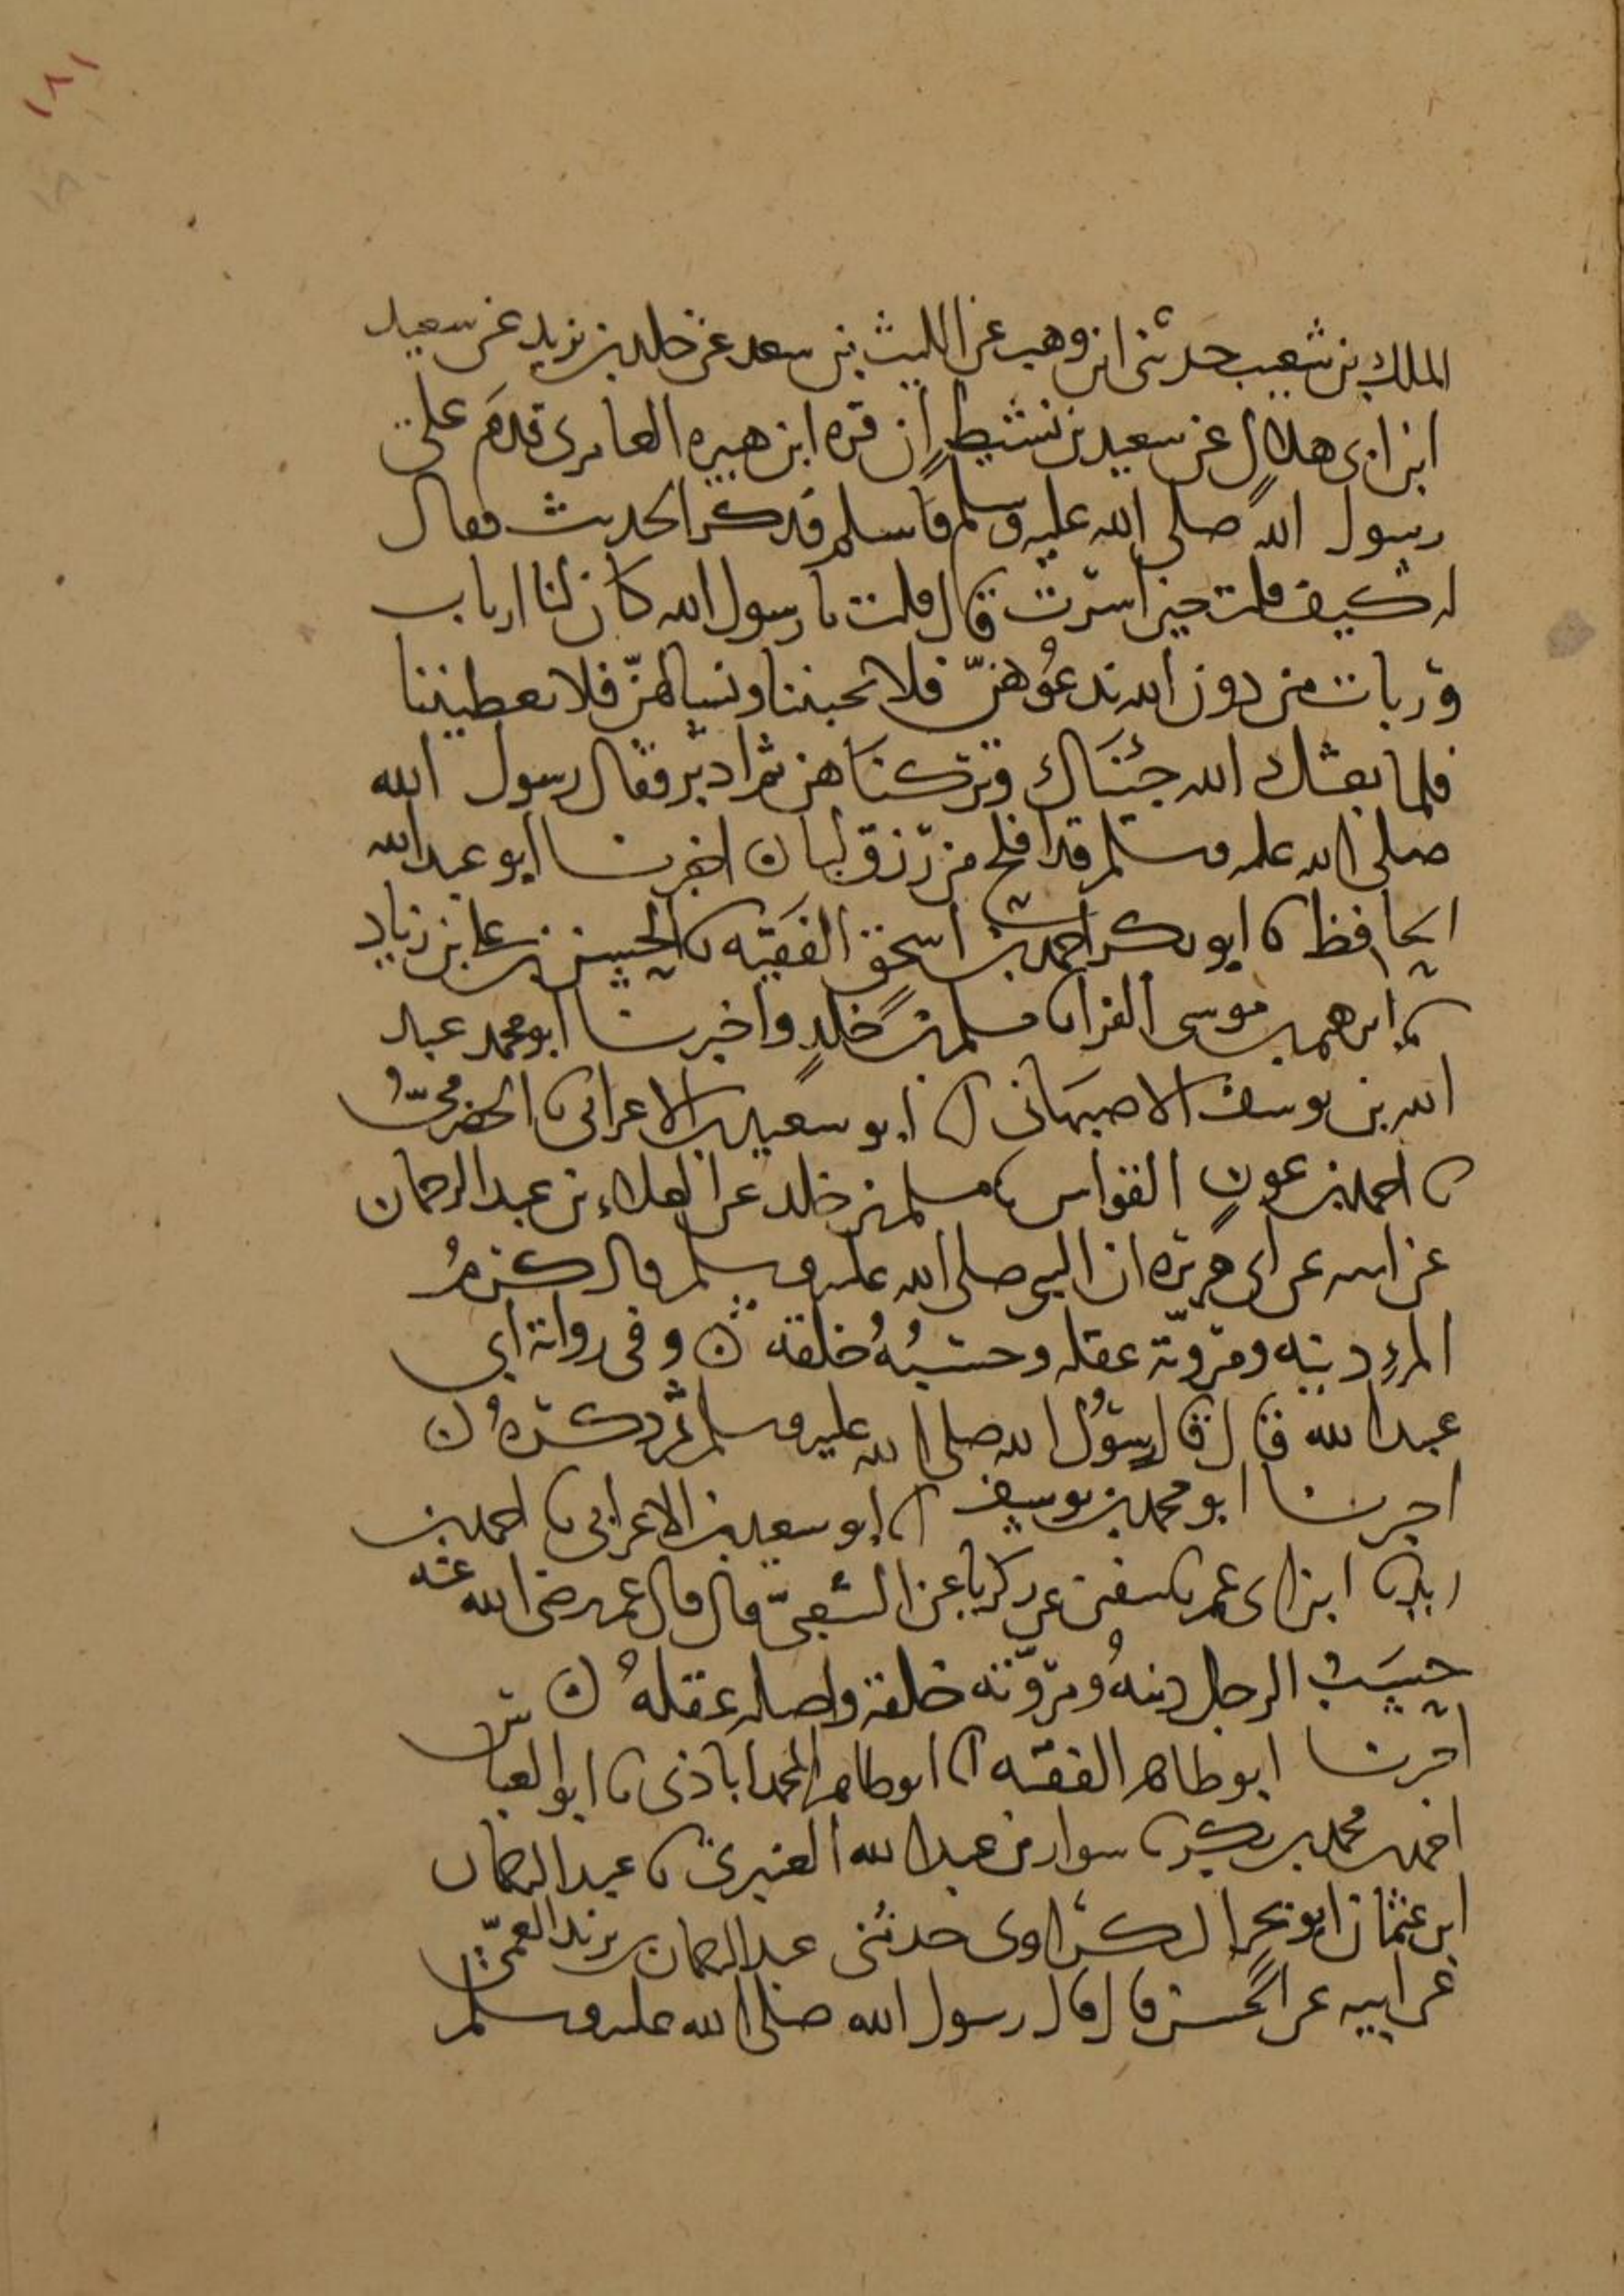 ١٨١
الملك بن شعيب حدثنى ابن وهب عن الليث بن سعد عن خلد بن يزيد عن سعيد
ابن ابى هلال عن سعيد بن نشيط ان قره ابن هبيره العامرى قدم على
رسول الله صلى الله عليه وسلم فاسلم فذكر الحديث فقال
له كيف قلت حين اسرت قال قلت يا رسول الله كان لنا ارباب
وربات من دون الله ندعوهن فلا يجبننا ونسالهن فلا يعطيننا
فلما بعثك الله جئناك وتركناهن ثم ادبر وقال رسول الله
صلى الله عليه وسلم قد افلح من رزق لبا ن اخبرنا ابو عبد الله
الحافظ نا ابو بكر احمد بن اسحق الفقيه نا الحسين بن على بن زياد
نا ابرهيم بن موسى الفرا نا مسلم بن خلد واخبرنا ابو محمد عبد
الله بن يوسف الاصبهانى انا ابو سعيد بن الاعرابى نا الحضرمىّ
نا احمد بن عون القواس نا مسلم بن خلد عن العلاء بن عبد الرحمان
عن ابيه عن ابى هريره ان النبى صلى الله عليه وسلم قال كرم
المرء دينه ومروّته عقله وحسبُهُ خلقه ن وفى رواية ابي
عبد الله قال قال رسول الله صلى الله عليه وسلم ثم ذكره ن
اخبرنا ابو محمد بن يوسف انا ابو سعيد بن الاعرابى نا احمد بن
زيد نا ابن ابى عمر نا سفين عن زكريا عن الشعبىّ قال قال عمر رضى الله عنه
حسب الرجل دينهُ ومروّته خلقه واصله عقلهُ ن
اخبرنا ابو طاهر الفقيه انا ابو طاهر المحمداباذى نا ابو العباس
احمد بن محمد بن بكير نا سوار بن عبد الله العنبرى نا عبد الرحمان
ابن عثمان ابو بحر البكراوى حدثنى عبد الرحمان بن يزيد العمّى
عن ابيه عن الحسن قال قال رسول الله صلى الله عليه وسلم